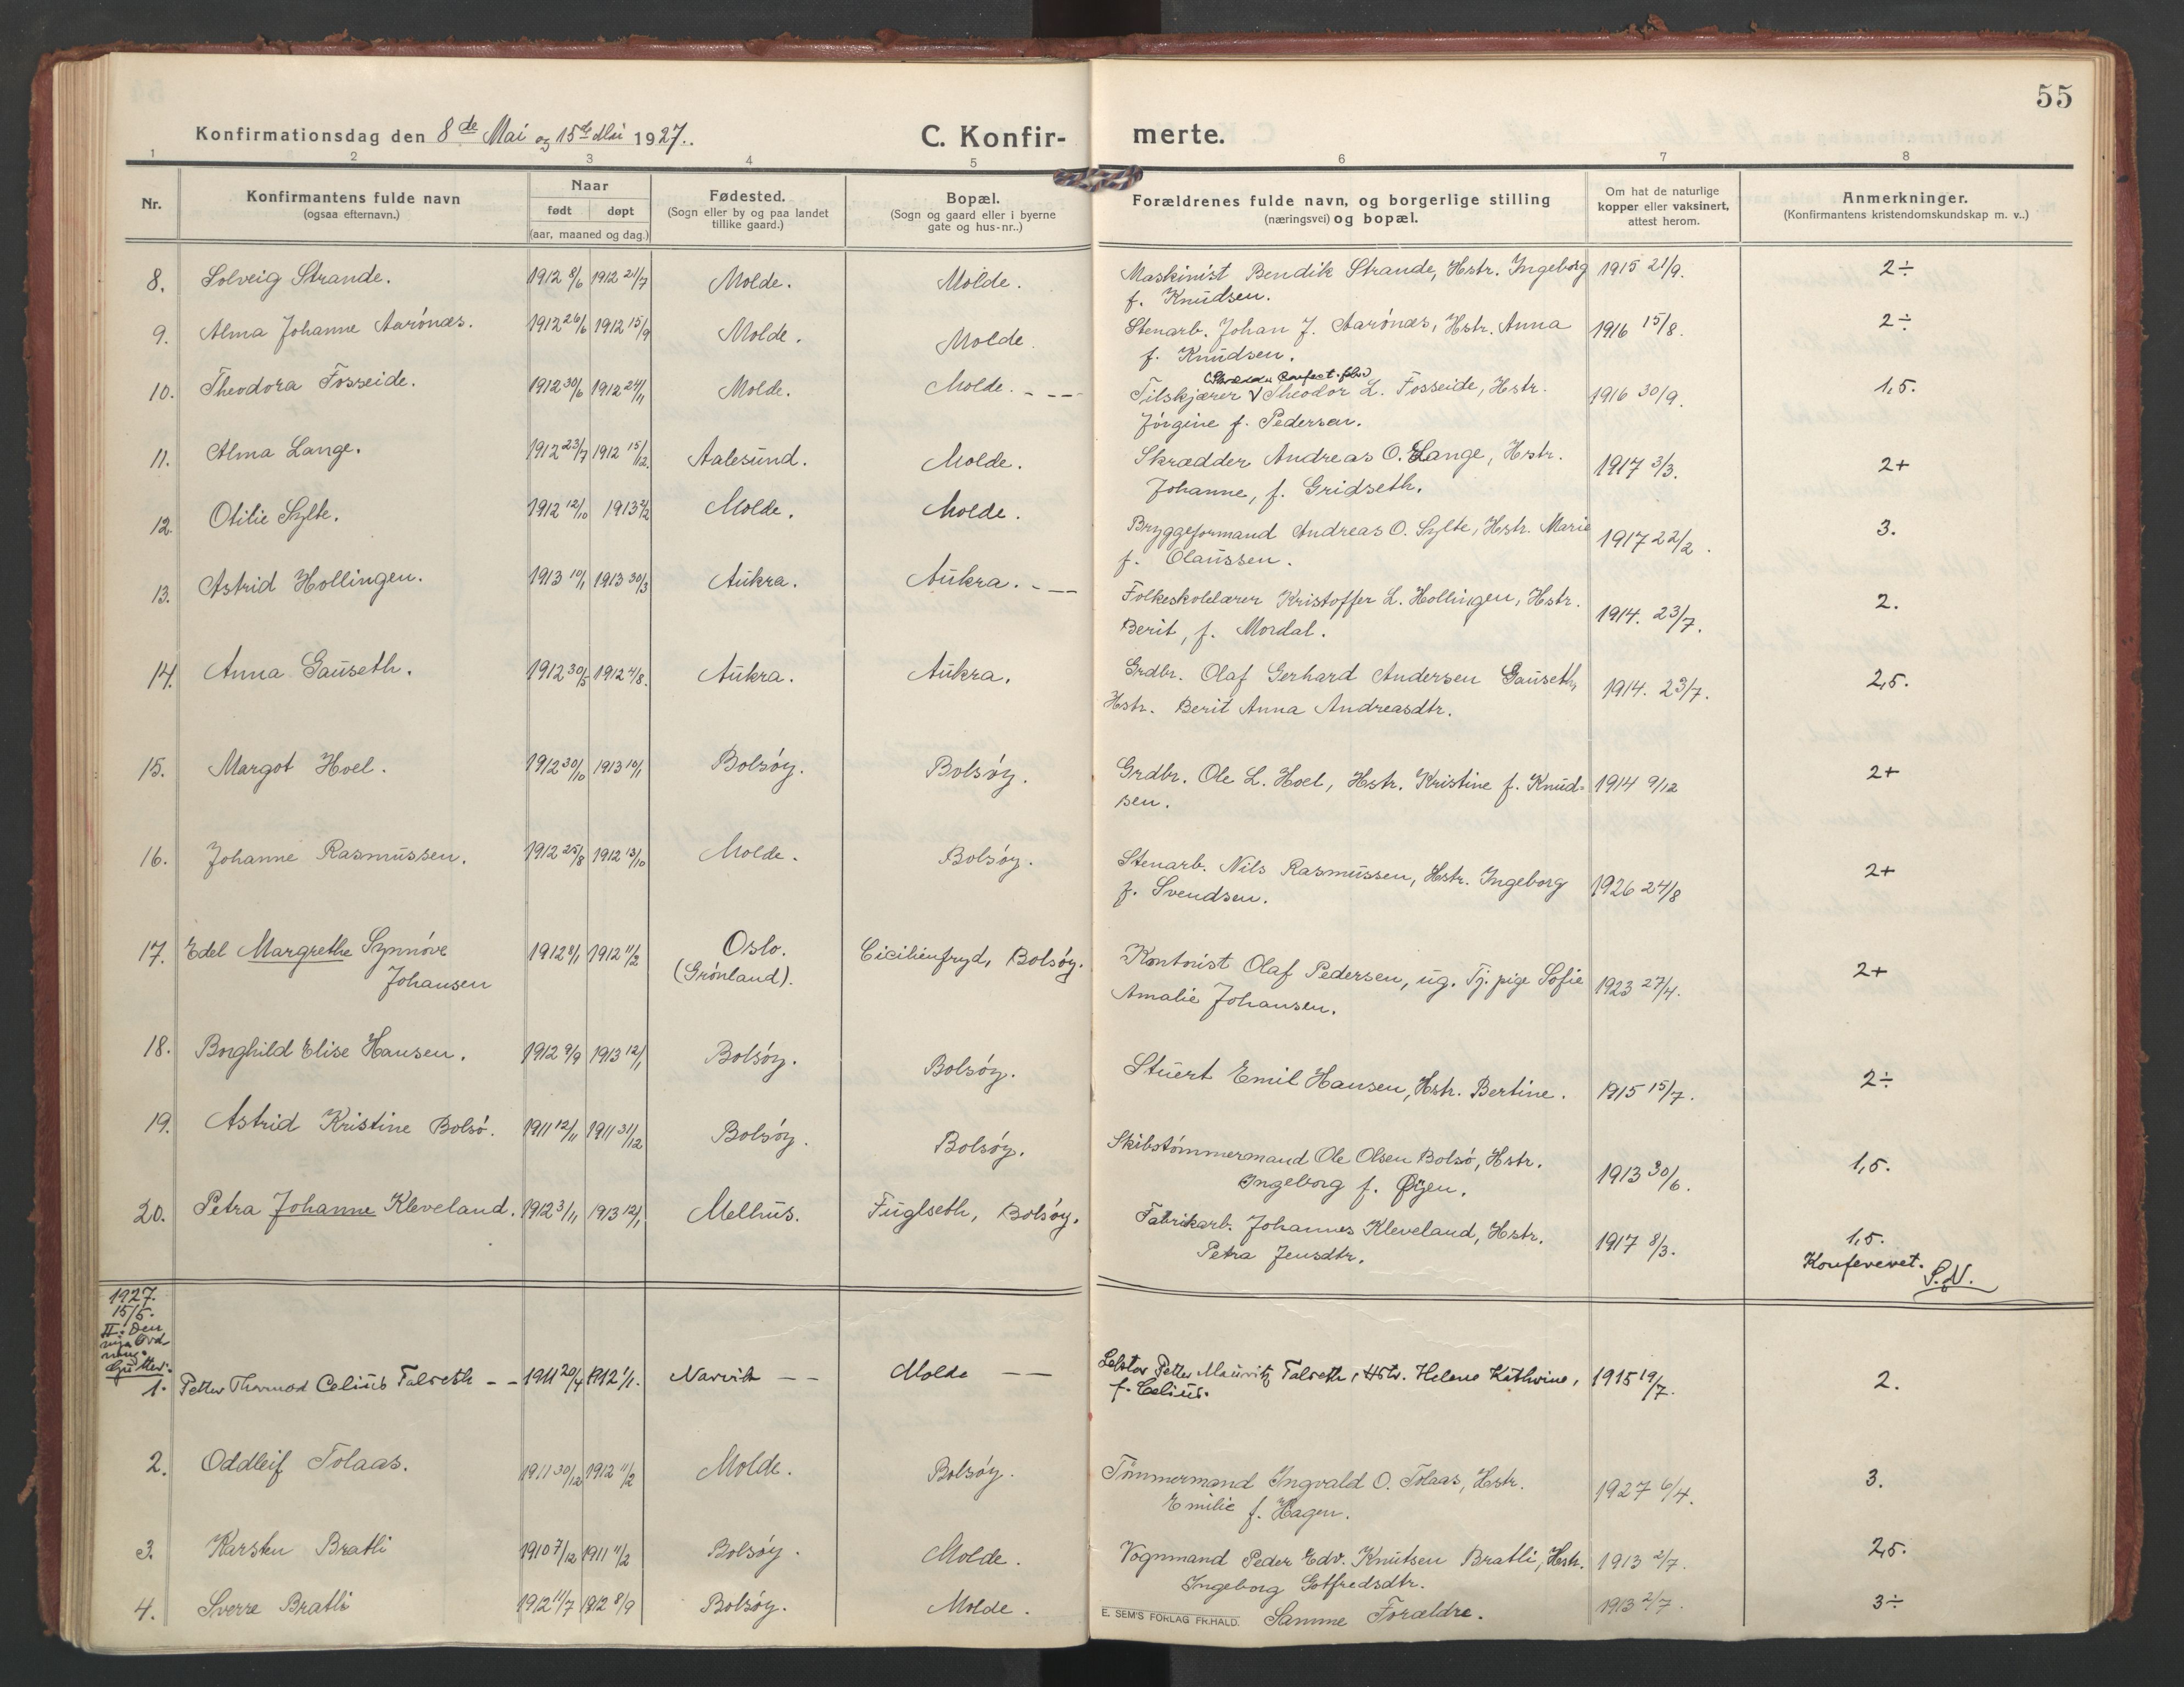 55
Konfirmationsdag den 8de Mai og 15de Mai 1927.
C. Konfir-
merte.
1 2 3 4 5 6 7 8
Nr.
Konfirmantens fulde navn
(ogsaa efternavn.)
Naar
født døpt
(aar, maaned og dag.)
Fødested.
(Sogn eller by og paa landet
tillike gaard.)
Bopæl.
(Sogn og gaard eller i byerne
gate og hus-nr..)
Forældrenes fulde navn, og borgerlige stilling
(næringsvei) og bopæl.
Om hat de naturlige
kopper eller vaksinert,
attest herom.
Anmerkninger.
(Konfirmantens kristendomskundskap m. v..)
8. Solveig Strande. 1912 8/6 1912 21/7 Molde. Molde. Maskinist Bendik Strande, Hstr. Ingeborg 1915 21/9. 2÷
f. Knudsen.
9. Alma Johanne Aarönæs. 1912 26/6 1912 15/9 Molde. Molde. Stenarb. Johan J. Aarönæs, Hstr. Anna 1916 15/8. 2÷
f. Knudsen.
10. Theodora Fosseide. 1912 30/6 1912 24/11 Molde. Molde. - - - Tilskjærer Theodor L. Fosseide, Hstr. 1916 30/9. 1,5.
Jörgine f. Pedersen.
11. Alma Lange. 1912 23/7 1912 15/12. Aalesund. Molde. Skrædder Andreas O. Lange, Hstr. 1917 3/3. 2+
Johanne, f. Gridseth.
12. Otilie Sylte. 1912 12/10 1913 2/2 Molde. Molde. Bryggeformand Andreas O. Sylte, Hstr. Marie 1917 22/2. 3.
f. Olaussen.
13. Astrid Hollingen. 1913 10/1 1913 30/3 Aukra. Aukra. - - - Folkeskolelærer Kristoffer L. Hollingen, Hstr. 1914. 23/7. 2.
Berit, f. Mordal.
14. Anna Gauseth. 1912 30/5 1912 4/8. Aukra. Aukra. Grdbr. Olaf Gerhard Andersen Gauseth, 1914. 23/7. 2,5.
Hstr. Berit Anna Andreasdtr.
15. Margot Hoel. 1912 30/10 1913 10/1 Bolsöy. Bolsöy. Grdbr. Ole L. Hoel, Hstr. Kristine f. Knud= 1914 9/12 2+
sen.
16. Johanne Rasmussen. 1912 25/8 1912 13/10 Molde. Bolsöy. Stenarb. Nils Rasmussen, Hstr. Ingeborg 1926 24/8 2+
f. Svendsen.
17. Edel Margrethe Synnöve 1912 8/1 1912 11/2 Oslo. Cicilienfryd, Bolsöy. Kontorist Olaf Pedersen, ug. Tj. pige Sofie 1923 27/4. 2+
Johansen (Grönland). Amalie Johansen.
18. Borghild Elise Hansen. 1912 9/9 1913 12/1 Bolsöy. Bolsöy. Stuert Emil Hansen, Hstr. Bertine. 1915 15/7. 2÷
19. Astrid Kristine Bolsö. 1911 12/11 1911 31/12 Bolsöy. Bolsöy. Skibstömmermand Ole Olsen Bolsö, Hstr. 1913 30/6. 1,5.
Ingeborg f. Øyen.
20. Petra Johanne Kleveland. 1912 3/11 1913 12/1 Melhus. Fuglseth, Bolsöy. Fabrikarb. Johannes Kleveland, Hstr. 1917 8/3. 1,5.
Petra Jensdtr.
Konfereret. S.N.
1927.
15/5.
II: Den
nye Ord
ning.
Gutter:
1. Petter Thormod Celius Talseth - - 1911 20/4 1912 1/1. Narvik - - Molde - - Lektor Petter Mauritz Talseth, Hstr. Helene Kathrine, 1915 19/7. 2.
f. Celius.
2. Oddleif Tolaas. 1911 30/12 1912 11/2 Molde. Bolsöy. Tömmermand Ingvald O. Tolaas, Hstr. 1927 6/4. 3.
Emilie f. Hagen.
3. Karsten Bratli 1910 7/12 1911 11/2 Bolsöy. Molde. Vognmand Peder Edv. Knutsen Bratli, Hstr. 1913 2/7. 2,5.
Ingeborg Gotfredsdtr.
4. Sverre Bratli 1912 11/7 1912 8/9 Bolsöy. Molde. Samme Forældre. 1913 2/7. 3÷
E. SEM'S FORLAG FR.HALD.